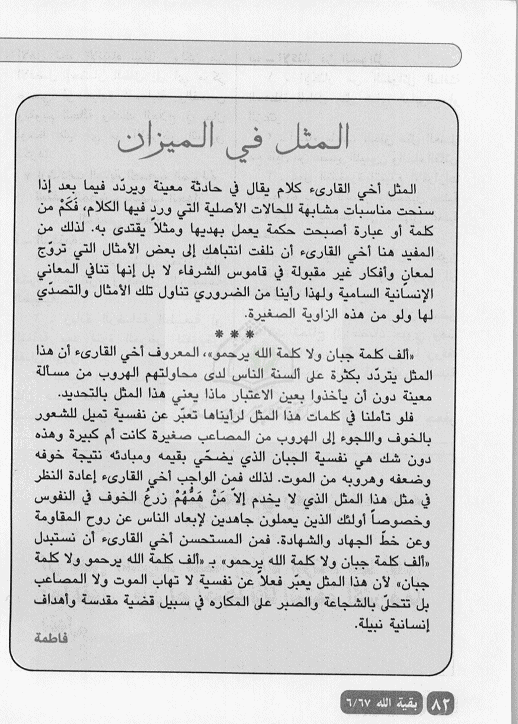 المثل في الميزان
المثل أخي القارىء كلام يقال في حادثة معينة ويردّد فيما بعد إذا
سنحت مناسبات مشابهة للحالات الأصلية التي ورد فيها الكلام، فَكَمْ من
كلمة أو عبارة أصبحت حكمة يعمل بهديها ومثلاً يقتدى به. لذلك من
المفيد هنا أخي القارىء أن نلفت انتباهك إلى بعض الأمثال التي تروّج
لمعانٍ وأفكار غير مقبولة في قاموس الشرفاء لا بل إنها تنافي المعاني
الإنسانية السامية ولهذا رأينا من الضروري تناول تلك الأمثال والتصدّي
لها ولو من هذه الزاوية الصغيرة.
***
«ألف كلمة جبان ولا كلمة الله يرحمو»، المعروف أخي القارىء أن هذا
المثل يتردّد بكثرة على ألسنة الناس لدى محاولتهم الهروب من مسألة
معينة دون أن يأخذوا بعين الاعتبار ماذا يعني هذا المثل بالتحديد.
فلو تأملنا في كلمات هذا المثل لرأيناها تعبّر عن نفسية تميل للشعور
بالخوف واللجوء إلى الهروب من المصاعب صغيرة كانت أم كبيرة وهذه
دون شك هي نفسية الجبان الذي يضحّي بقيمه ومبادئه نتيجة خوفه
وضعفه وهروبه من الموت. لذلك فمن الواجب أخي القارىء إعادة النظر
في مثل هذا المثل الذي لا يخدم إلاّ مَنْ هَمُّهُمْ زرعُ الخوف في النفوس
وخصوصاً أولئك الذين يعملون جاهدين لإبعاد الناس عن روح المقاومة
وعن خطّ الجهاد والشهادة. فمن المستحسن أخي القارىء أن نستبدل
«ألف كلمة جبان ولا كلمة الله يرحمو» بـ «ألف كلمة الله يرحمو ولا كلمة
جبان» لأن هذا المثل يعبّر فعلاً عن نفسية لا تهاب الموت ولا المصاعب
بل تتحلّى بالشجاعة والصبر على المكاره في سبيل قضية مقدسة وأهداف
إنسانية نبيلة.
فاطمة
٨٢ بقية الله ٦/٦٧